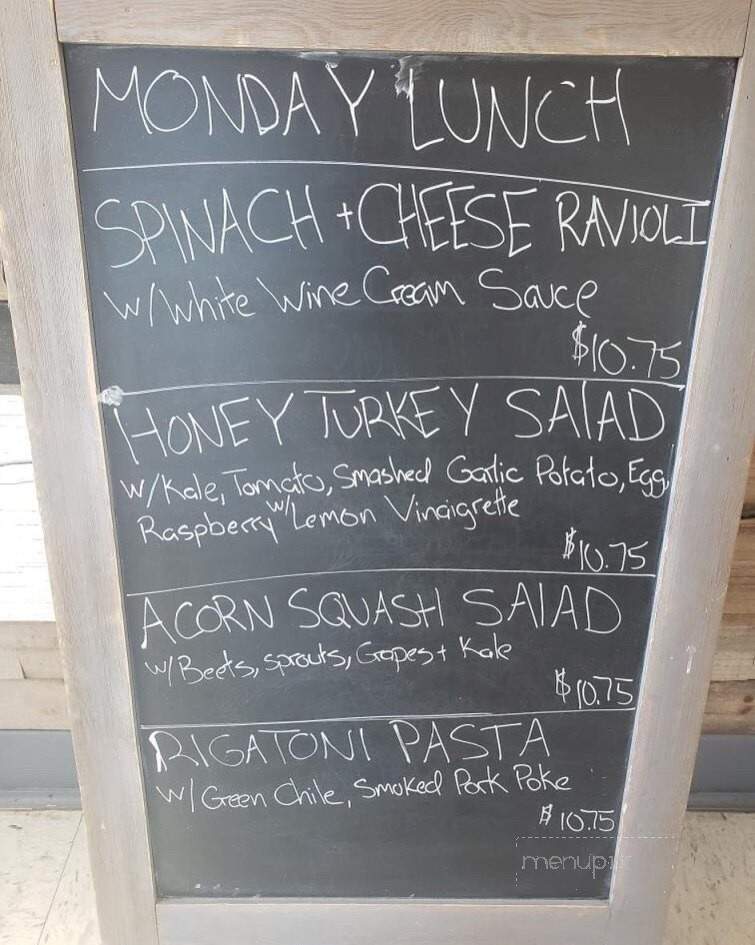 MONDAY LUNCH
SPINACH + CHEESE RAVIOLI
w/White Wine Cream Sauce
$10.75
HONEY TURKEY SAlAD
w/Kale, Tomato, Smashed Garlic Potato, Egg,
Raspberry w/ Lemon Vinaigrette
$10.75
ACORN SQUASH SAlAD
w/Beets, sprouts, Grapes + Kale
$10.75
RIGATONI PASTA
w/Green Chile, Smoked Pork Poke
$10.75